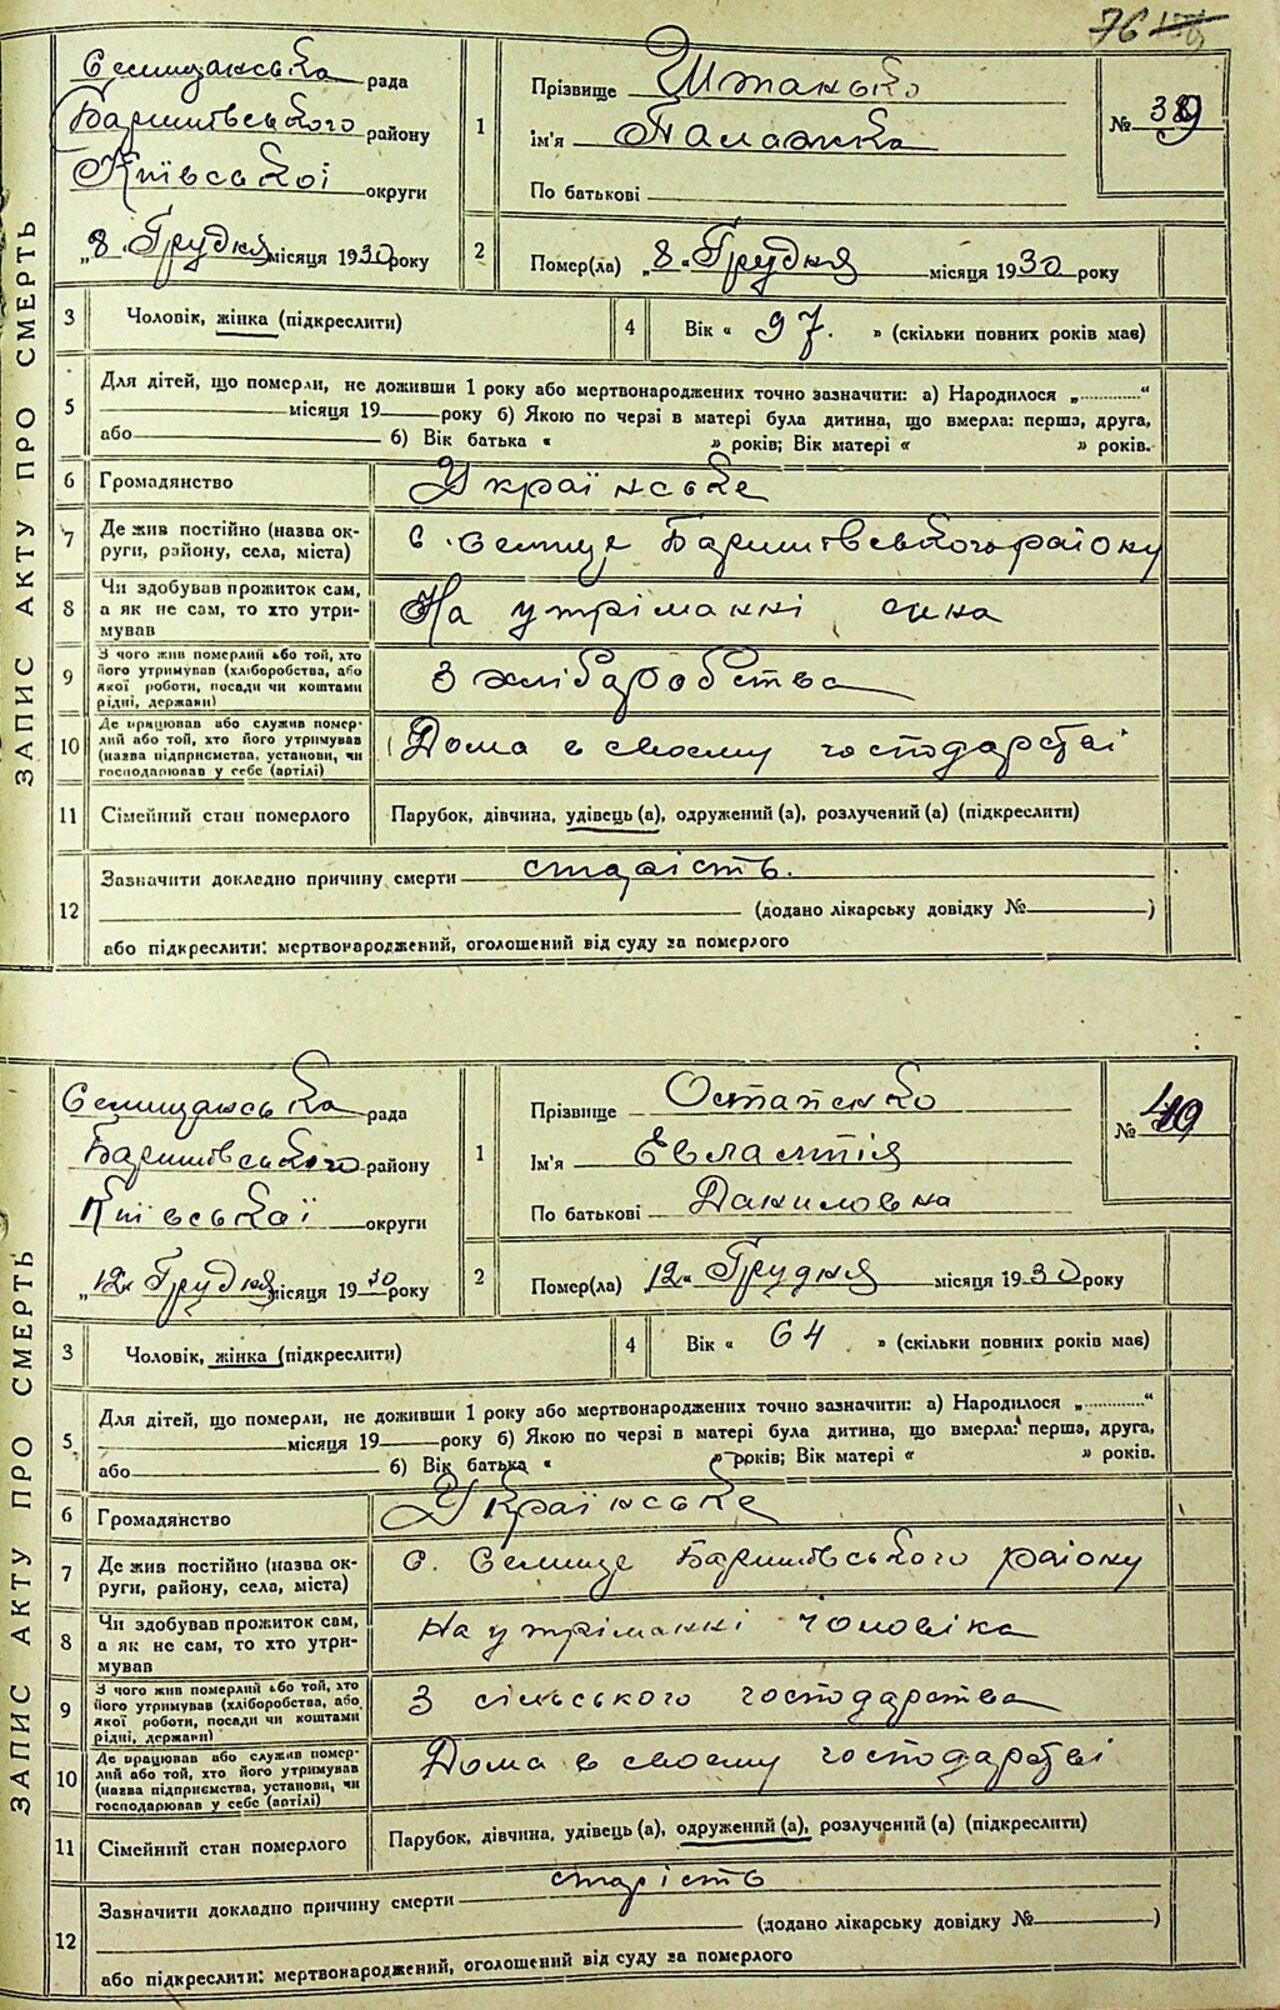 76
ЗАПИС АКТУ ПРО СМЕРТЬ
Селищанська рада
Баришівського району
Київської округи
„8" Грудня місяця 1930 року
1
Прізвище Штанько
ім'я Палажка
По батькові
№ 39
2
Помер(ла) „8" Грудня місяця 1930 року
3
Чоловік, жінка (підкреслити)
4
Вік « 97. » (скільки повних років має)
5
Для дітей, що померли, не доживши 1 року або мертвонароджених точно зазначити: а) Народилося „............“
місяця 19 року б) Якою по черзі в матері була дитина, що вмерла: перша, друга,
або б) Вік батька « » років; Вік матері « » років.
6
Громадянство
Українське
7
Де жив постійно (назва ок-
руги, району, села, міста)
с. Селище Баришівського району
8
Чи здобував прожиток сам,
а як не сам, то хто утри-
мував
На утріманні сина
9
З чого жив померлий або той, хто
його утримував (хліборобства, або
якої роботи, посади чи коштами
рідні, держави)
З хліборобства
10
Де працював або служив помер-
лий або той, хто його утримував
(назва підприємства, установи, чи
господарював у себе (артілі)
Дома в своєму господарстві
11
Сімейний стан померлого
Парубок, дівчина, удівець (а), одружений (а), розлучений (а) (підкреслити)
12
Зазначити докладно причину смерти старість.
(додано лікарську довідку № )
або підкреслити: мертвонароджений, оголошений від суду за померлого
ЗАПИС АКТУ ПРО СМЕРТЬ
Селищанська рада
Баришівського району
Київської округи
„12" Грудня місяця 1930 року
1
Прізвище Остапенко
Ім'я Евлампія
По батькові Даниловна
№ 40
2
Помер(ла) „12" Грудня місяця 1930 року
3
Чоловік, жінка (підкреслити)
4
Вік « 64 » (скільки повних років має)
5
Для дітей, що померли, не доживши 1 року або мертвонароджених точно зазначити: а) Народилося „............“
місяця 19 року б) Якою по черзі в матері була дитина, що вмерла: перша, друга,
або б) Вік батька « » років; Вік матері « » років.
6
Громадянство
Українське
7
Де жив постійно (назва ок-
руги, району, села, міста)
с. Селище Баришівського району
8
Чи здобував прожиток сам,
а як не сам, то хто утри-
мував
На утріманні чоловіка
9
З чого жив померлий або той, хто
його утримував (хліборобства, або
якої роботи, посади чи коштами
рідні, держави)
З сільського господарства
10
Де працював або служив помер-
лий або той, хто його утримував
(назва підприємства, установи, чи
господарював у себе (артілі)
Дома в своєму господарстві
11
Сімейний стан померлого
Парубок, дівчина, удівець (а), одружений (а), розлучений (а) (підкреслити)
12
Зазначити докладно причину смерти старість
(додано лікарську довідку № )
або підкреслити: мертвонароджений, оголошений від суду за померлого